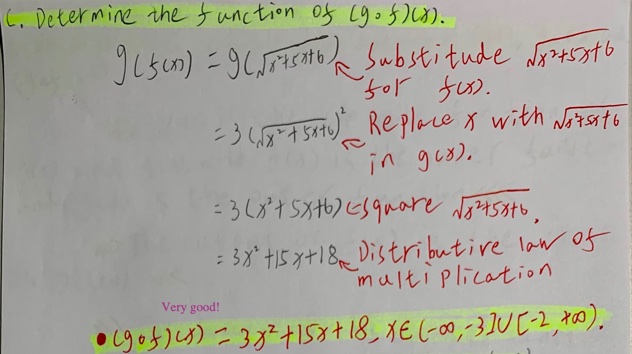 C. Determine the function of (g∘f)(x).
g(f(x)) = g(√x²+5x+6) ← Substitude √x²+5x+6
for f(x).
= 3(√x²+5x+6)² ← Replace x with √x²+5x+6
in g(x).
= 3(x²+5x+6) ← square √x²+5x+6.
= 3x²+15x+18 ← Distributive law of
multiplication
Very good!
• (g∘f)(x) = 3x²+15x+18, x∈(-∞,-3]∪[-2,+∞).